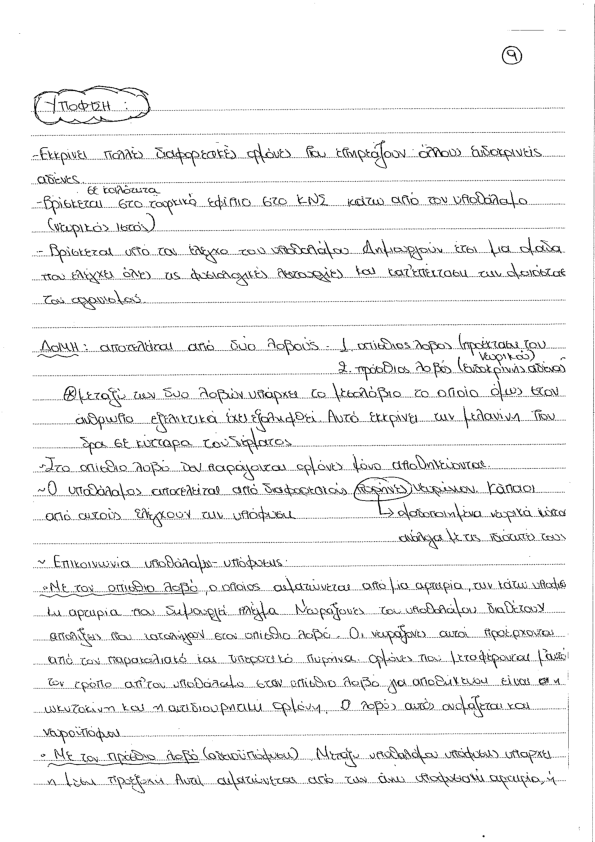 9
ΥΠΟΦΥΣΗ :
-Εκκρίνει πολλές διαφορετικές ορμόνες που επηρεάζουν άλλους ενδοκρινείς
αδένες.
σε κοιλότητα
-Βρίσκεται στο τουρκικό εφίπιο στο ΚΝΣ κάτω από τον υποθάλαμο
(νευρικός ιστός)
- Βρίσκεται υπό τον έλεγχο του υποθαλάμου. Δημιουργούν έτσι μια ομάδα
που ελέγχει όλες τις φυσιολογικές λειτουργίες και κατ'επέκταση την ομοιόσταση
του οργανισμού.
ΔΟΜΗ : αποτελείται από δύο λοβούς - 1. οπίσθιος λοβός (προέκταση του
νευρικού)
2. πρόσθιος λοβός (ενδοκρινής αδένας)
* Μεταξύ των δυο λοβών υπάρχει το μεσολόβιο το οποίο όμως στον
άνθρωπο εξελικτικά έχει εξαλειφθεί. Αυτό εκκρίνει την μελανίνη που
δρα σε κύτταρα του δέρματος.
-Στο οπίσθιο λοβό δεν παράγονται ορμόνες μόνο αποθηκεύονται.
~Ο υποθάλαμος αποτελείται από διαφορετικούς πυρήνες νευρώνων. Κάποιοι
από αυτούς ελέγχουν την υπόφυση. → ομαδοποιημένα νευρικά κύτταρα
ανάλογα με τις ιδιότητές τους
~ Επικοινωνία υποθαλάμου-υπόφυσης.
• Με τον οπίσθιο λοβό, ο οποίος αιματώνεται από μία αρτηρία, την κάτω υποφυσι
κη αρτηρία που δημιουργεί πλέγμα. Νευράξονες του υποθαλάμου διαθέτουν
απολήξεις που καταλήγουν στον οπίσθιο λοβό. Οι νευράξονες αυτοί προέρχονται
από τον παρακοιλιακό και υπεροπτικό πυρήνα. Ορμόνες που μεταφέρονται μ'αυτό
τον τρόπο απ'τον υποθάλαμο στον οπίσθιο λοβό για αποθήκευση είναι η
ωκυτοκίνη και η αντιδιουρητική ορμόνη. Ο λοβός αυτός ονομάζεται και
νευροϋπόφυση
• Με τον πρόσθιο λοβό (αδενοϋπόφυση). Μεταξύ υποθαλάμου υπόφυσης υπάρχει
η μέση προεξοχή. Αυτή αιματώνεται από την άνω υποφυσιακή αρτηρία, η